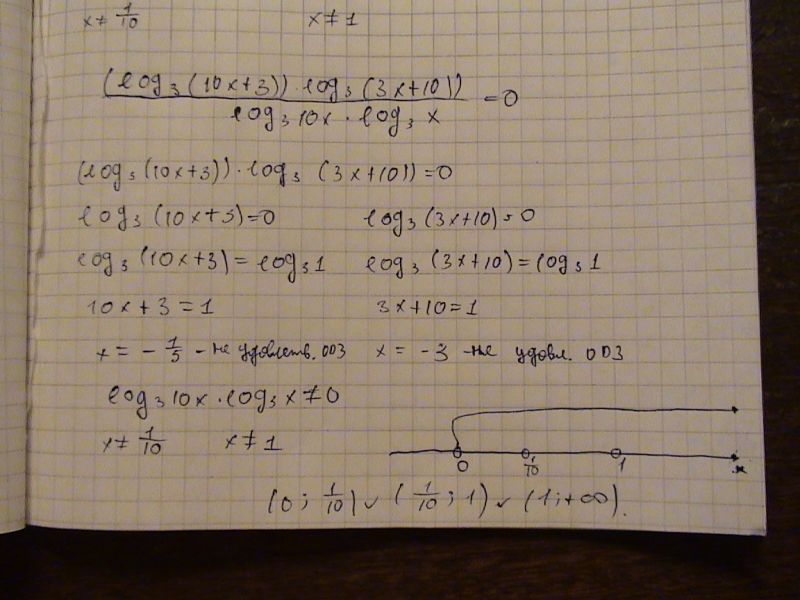 x ≠ 1/10 x ≠ 1
(log₃(10x+3))·log₃(3x+10)) / log₃10x · log₃x = 0
(log₃(10x+3))·log₃(3x+10))=0
log₃(10x+3)=0 log₃(3x+10)=0
log₃(10x+3)=log₃1 log₃(3x+10)=log₃1
10x+3=1 3x+10=1
x = -1/5 - не удовлетв. ОДЗ x = -3 - не удовл. ОДЗ
log₃10x·log₃x≠0
x≠1/10 x≠1
0 1/10 1 x
(0; 1/10) ∪ (1/10; 1) ∪ (1; +∞).